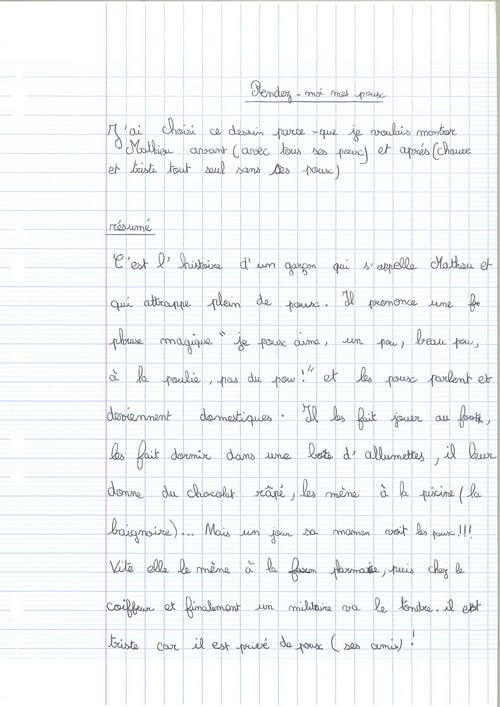 Rendez-moi mes poux
J'ai choisi ce dessin parce-que je voulais montrer
Mathieu avant (avec tous ses poux) et après (chauve
et triste tout seul sans ses poux)
résumé
C'est l'histoire d'un garçon qui s'appelle Mathieu et
qui attrappe plein de poux. Il prononce une
phrase magique "je poux aime, un pou, beau pou,
à la poulie, pas du pou!" et les poux parlent et
deviennent domestiques. Il les fait jouer au foot,
les fait dormir dans une boîte d'allumettes, il leur
donne du chocolat râpé, les mène à la piscine (la
baignoire)... Mais un jour sa maman voit les poux!!!
Vite elle le mène à la pharmacie, puis chez le
coiffeur et finalement un militaire va le tondre. il est
triste car il est privé de poux (ses amis)!